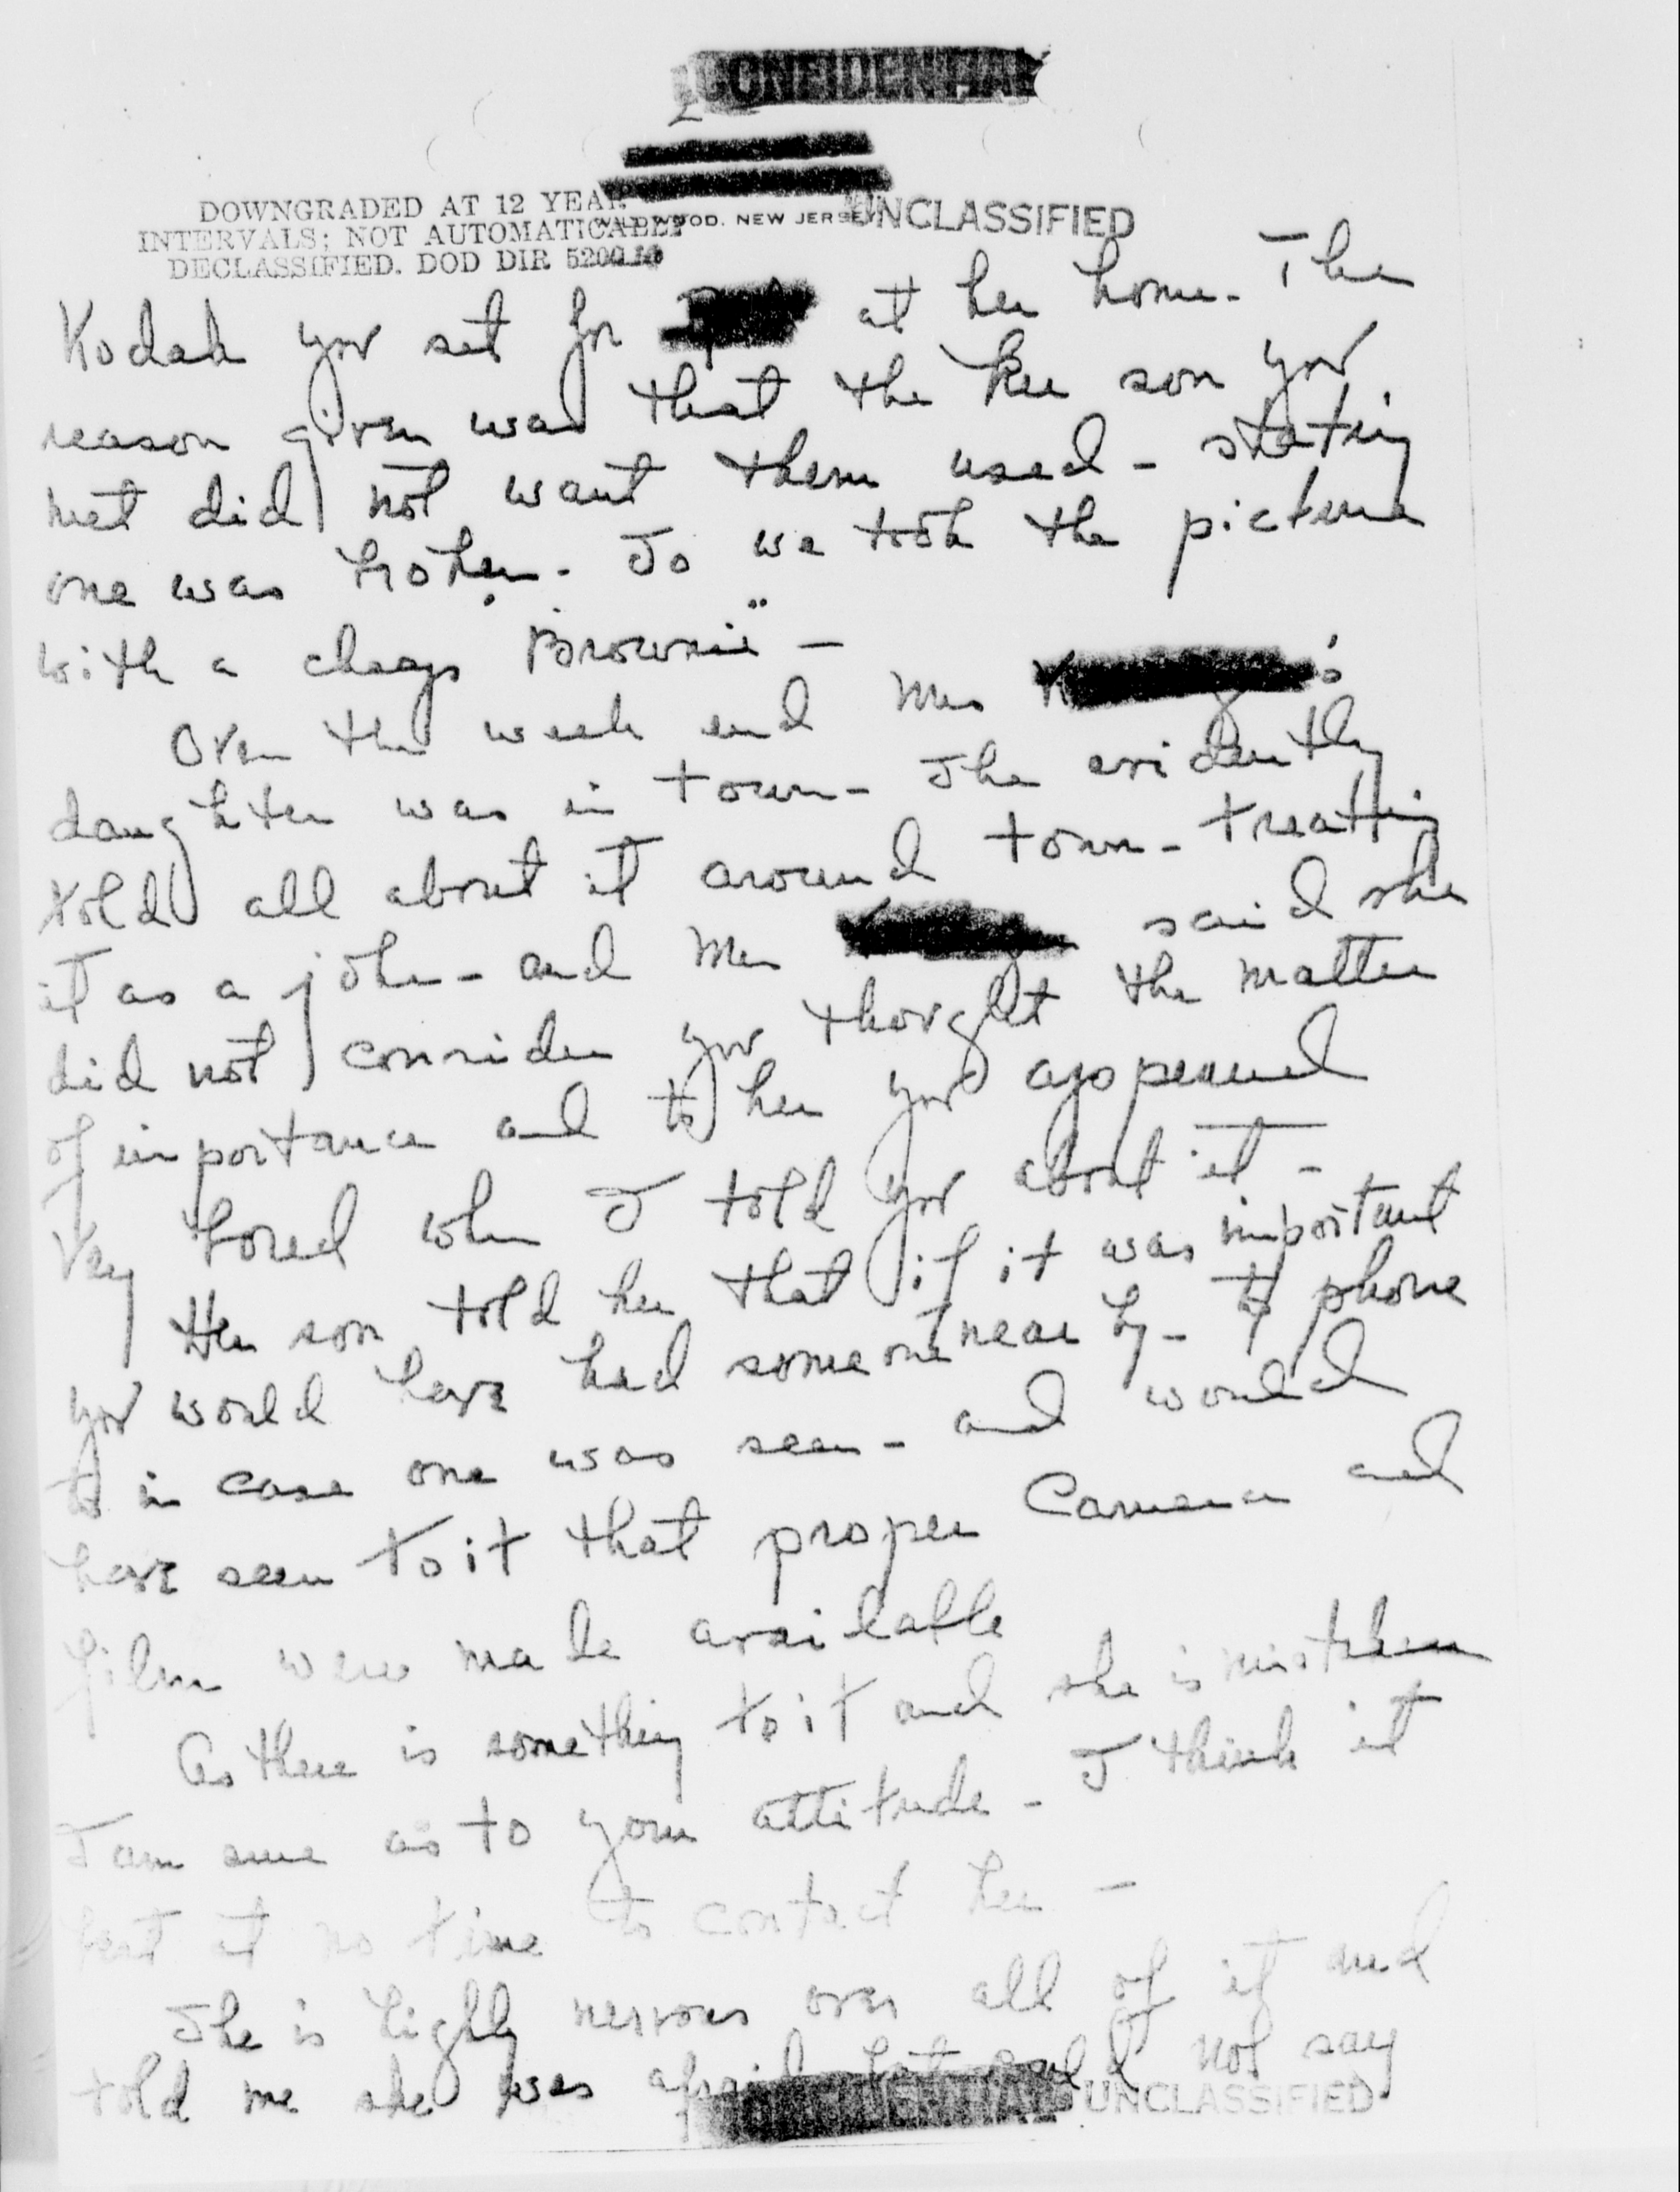 CONFIDENTIAL
2
DOWNGRADED AT 12 YEAR
INTERVALS; NOT AUTOMATICALLY
DECLASSIFIED. DOD DIR 5200.10
WOOD, NEW JERSEY
UNCLASSIFIED
Kodak you set for at her home. The
reason given was that the son you
met did not want them used - stating
one was broken. So we took the picture
with a cheap "Brownie" -
Over the week end Mrs K 's
daughter was in town - She evidently
told all about it around town - treating
it as a joke - and Mrs said she
did not consider you thought the matter
of importance and to her you appeared
very bored when I told you about it -
Her son told her that if it was important
you would have had someone near by - to phone
to in case one was seen - and would
have seen to it that proper Camera and
film were made available
As there is something to it and she is mistaken
I am sure as to your attitude - I think it
best at no time to contact her -
She is highly nervous over all of it and
told me she was afraid but could not say
CONFIDENTIAL
UNCLASSIFIED